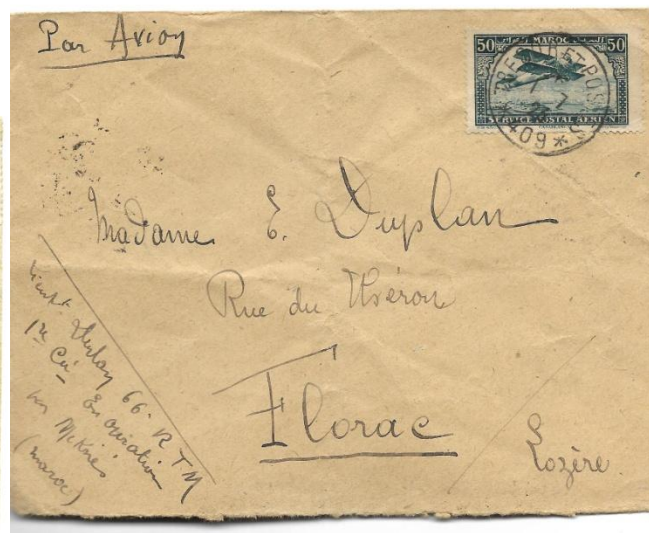 Par Avion
50 MAROC 50
SERVICE POSTAL AERIEN
TRESOR ET POSTES
*409*
7
Madame E. Duplan
Rue du Théron
Florac
Lozère
Lieut Duplan 66e R T M
1re Cie En opération
par Meknès
(maroc)